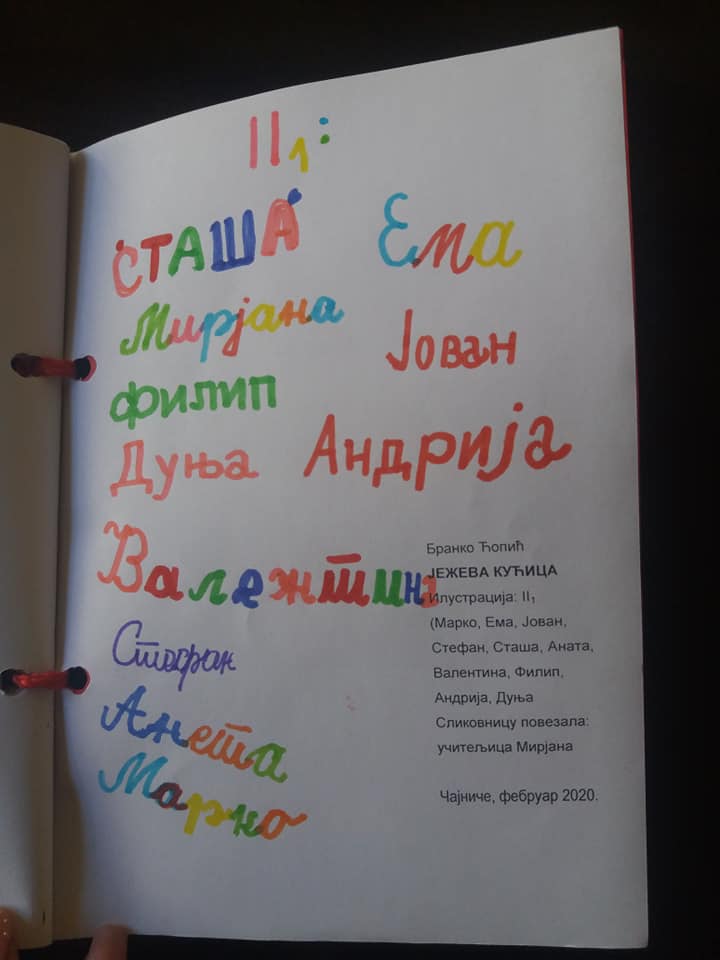 II₁:
СТАША
Ема
Мирјана
Јован
филип
Дуња
Андрија
Валентина
Стефан
Анета
Марко
Бранко Ћопић
ЈЕЖЕВА КУЋИЦА
Илустрација: II₁
(Марко, Ема, Јован,
Стефан, Сташа, Аната,
Валентина, Филип,
Андрија, Дуња
Сликовницу повезала:
учитељица Мирјана
Чајниче, фебруар 2020.